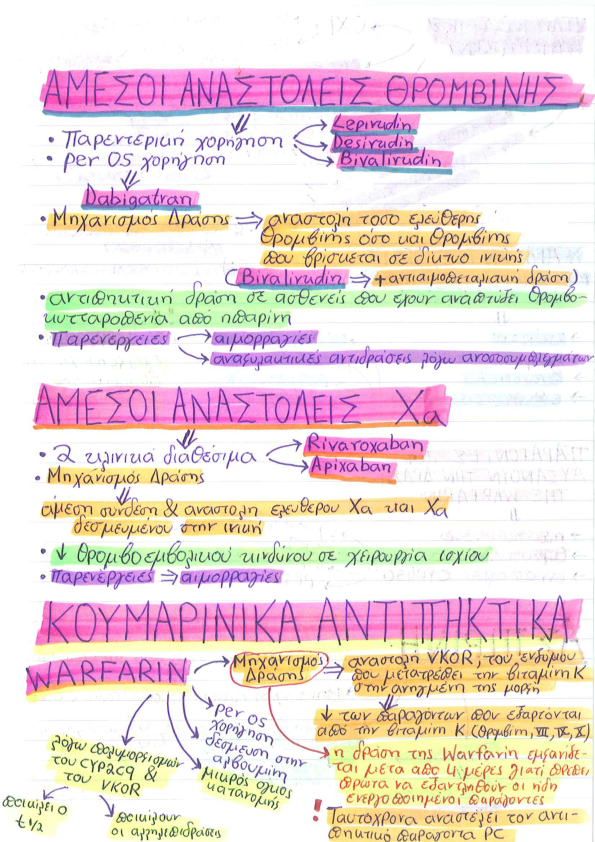 ΑΜΕΣΟΙ ΑΝΑΣΤΟΛΕΙΣ ΘΡΟΜΒΙΝΗΣ
• Παρεντερική χορήγηση → Lepirudin
→ Desirudin
→ Bivalirudin
• per OS χορήγηση
⇓
Dabigatran
• Μηχανισμός Δράσης ⇒ αναστολή τόσο ελεύθερης
θρομβίνης όσο και θρομβίνης
που βρίσκεται σε δίκτυο ινικής
(Bivalirudin ⇒ + αντιαιμοπεταλιακή δράση)
• αντιπηκτική δράση σε ασθενείς που έχουν αναπτύξει θρομβο-
κυτταροπενία από ηπαρίνη
• Παρενέργειες → αιμορραγίες
→ αναφυλακτικές αντιδράσεις λόγω ανοσοσυμπλεγμάτων
ΑΜΕΣΟΙ ΑΝΑΣΤΟΛΕΙΣ Xa
• 2 κλινικά διαθέσιμα → Rivaroxaban
→ Apixaban
• Μηχανισμός Δράσης
⇓
άμεση σύνδεση & αναστολή ελεύθερου Xa και Xa
δεσμευμένου στην ινική
• ↓ θρομβοεμβολικού κινδύνου σε χειρουργία ισχίου
• Παρενέργειες ⇒ αιμορραγίες
ΚΟΥΜΑΡΙΝΙΚΑ ΑΝΤΙΠΗΚΤΙΚΑ
WARFARIN → Μηχανισμός
Δράσης ⇒ αναστολή VKOR, του ενζύμου
που μετατρέπει την βιταμίνη Κ
στην ανηγμένη της μορφή
⇓
↓ των παραγόντων που εξαρτώνται
από την βιταμίνη Κ (θρομβίνη, VII, IX, X)
η δράση της Warfarin εμφανίζε-
ται μετά από 4 μέρες γιατί πρέπει
πρώτα να εξαντληθούν οι ήδη
ενεργοποιημένοι παράγοντες
! Ταυτόχρονα αναστέλλει τον αντι-
πηκτικό παράγοντα PC
per OS
χορήγηση
δέσμευση στην
αλβουμίνη
Μικρός όγκος
κατανομής
λόγω πολυμορφισμών
του CYP2C9 &
του VKOR
ποικίλει ο
t 1/2
ποικίλουν
οι αλληλεπιδράσεις